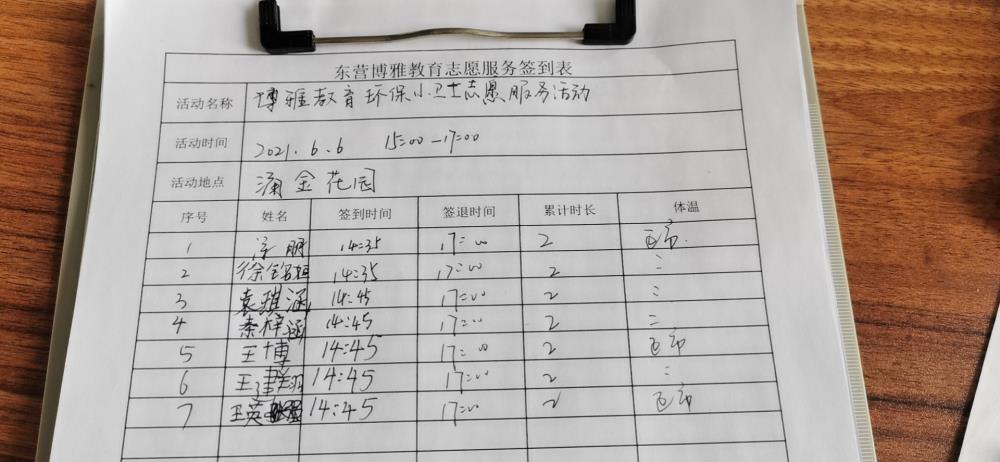 东营博雅教育志愿服务签到表
活动名称 博雅教育环保小卫士志愿服务活动
活动时间 2021.6.6 15:00-17:00
活动地点 涌金花园
序号 姓名 签到时间 签退时间 累计时长 体温
1 14:35 17:00 2 正常
2 徐铭 14:35 17:00 2 〃
3 袁雅涵 14:45 17:00 2 〃
4 秦梓涵 14:45 17:00 2 〃
5 王博 14:45 17:00 2 正常
6 王 翔 14:45 17:00 2 〃
7 王英 14:45 17:00 2 正常